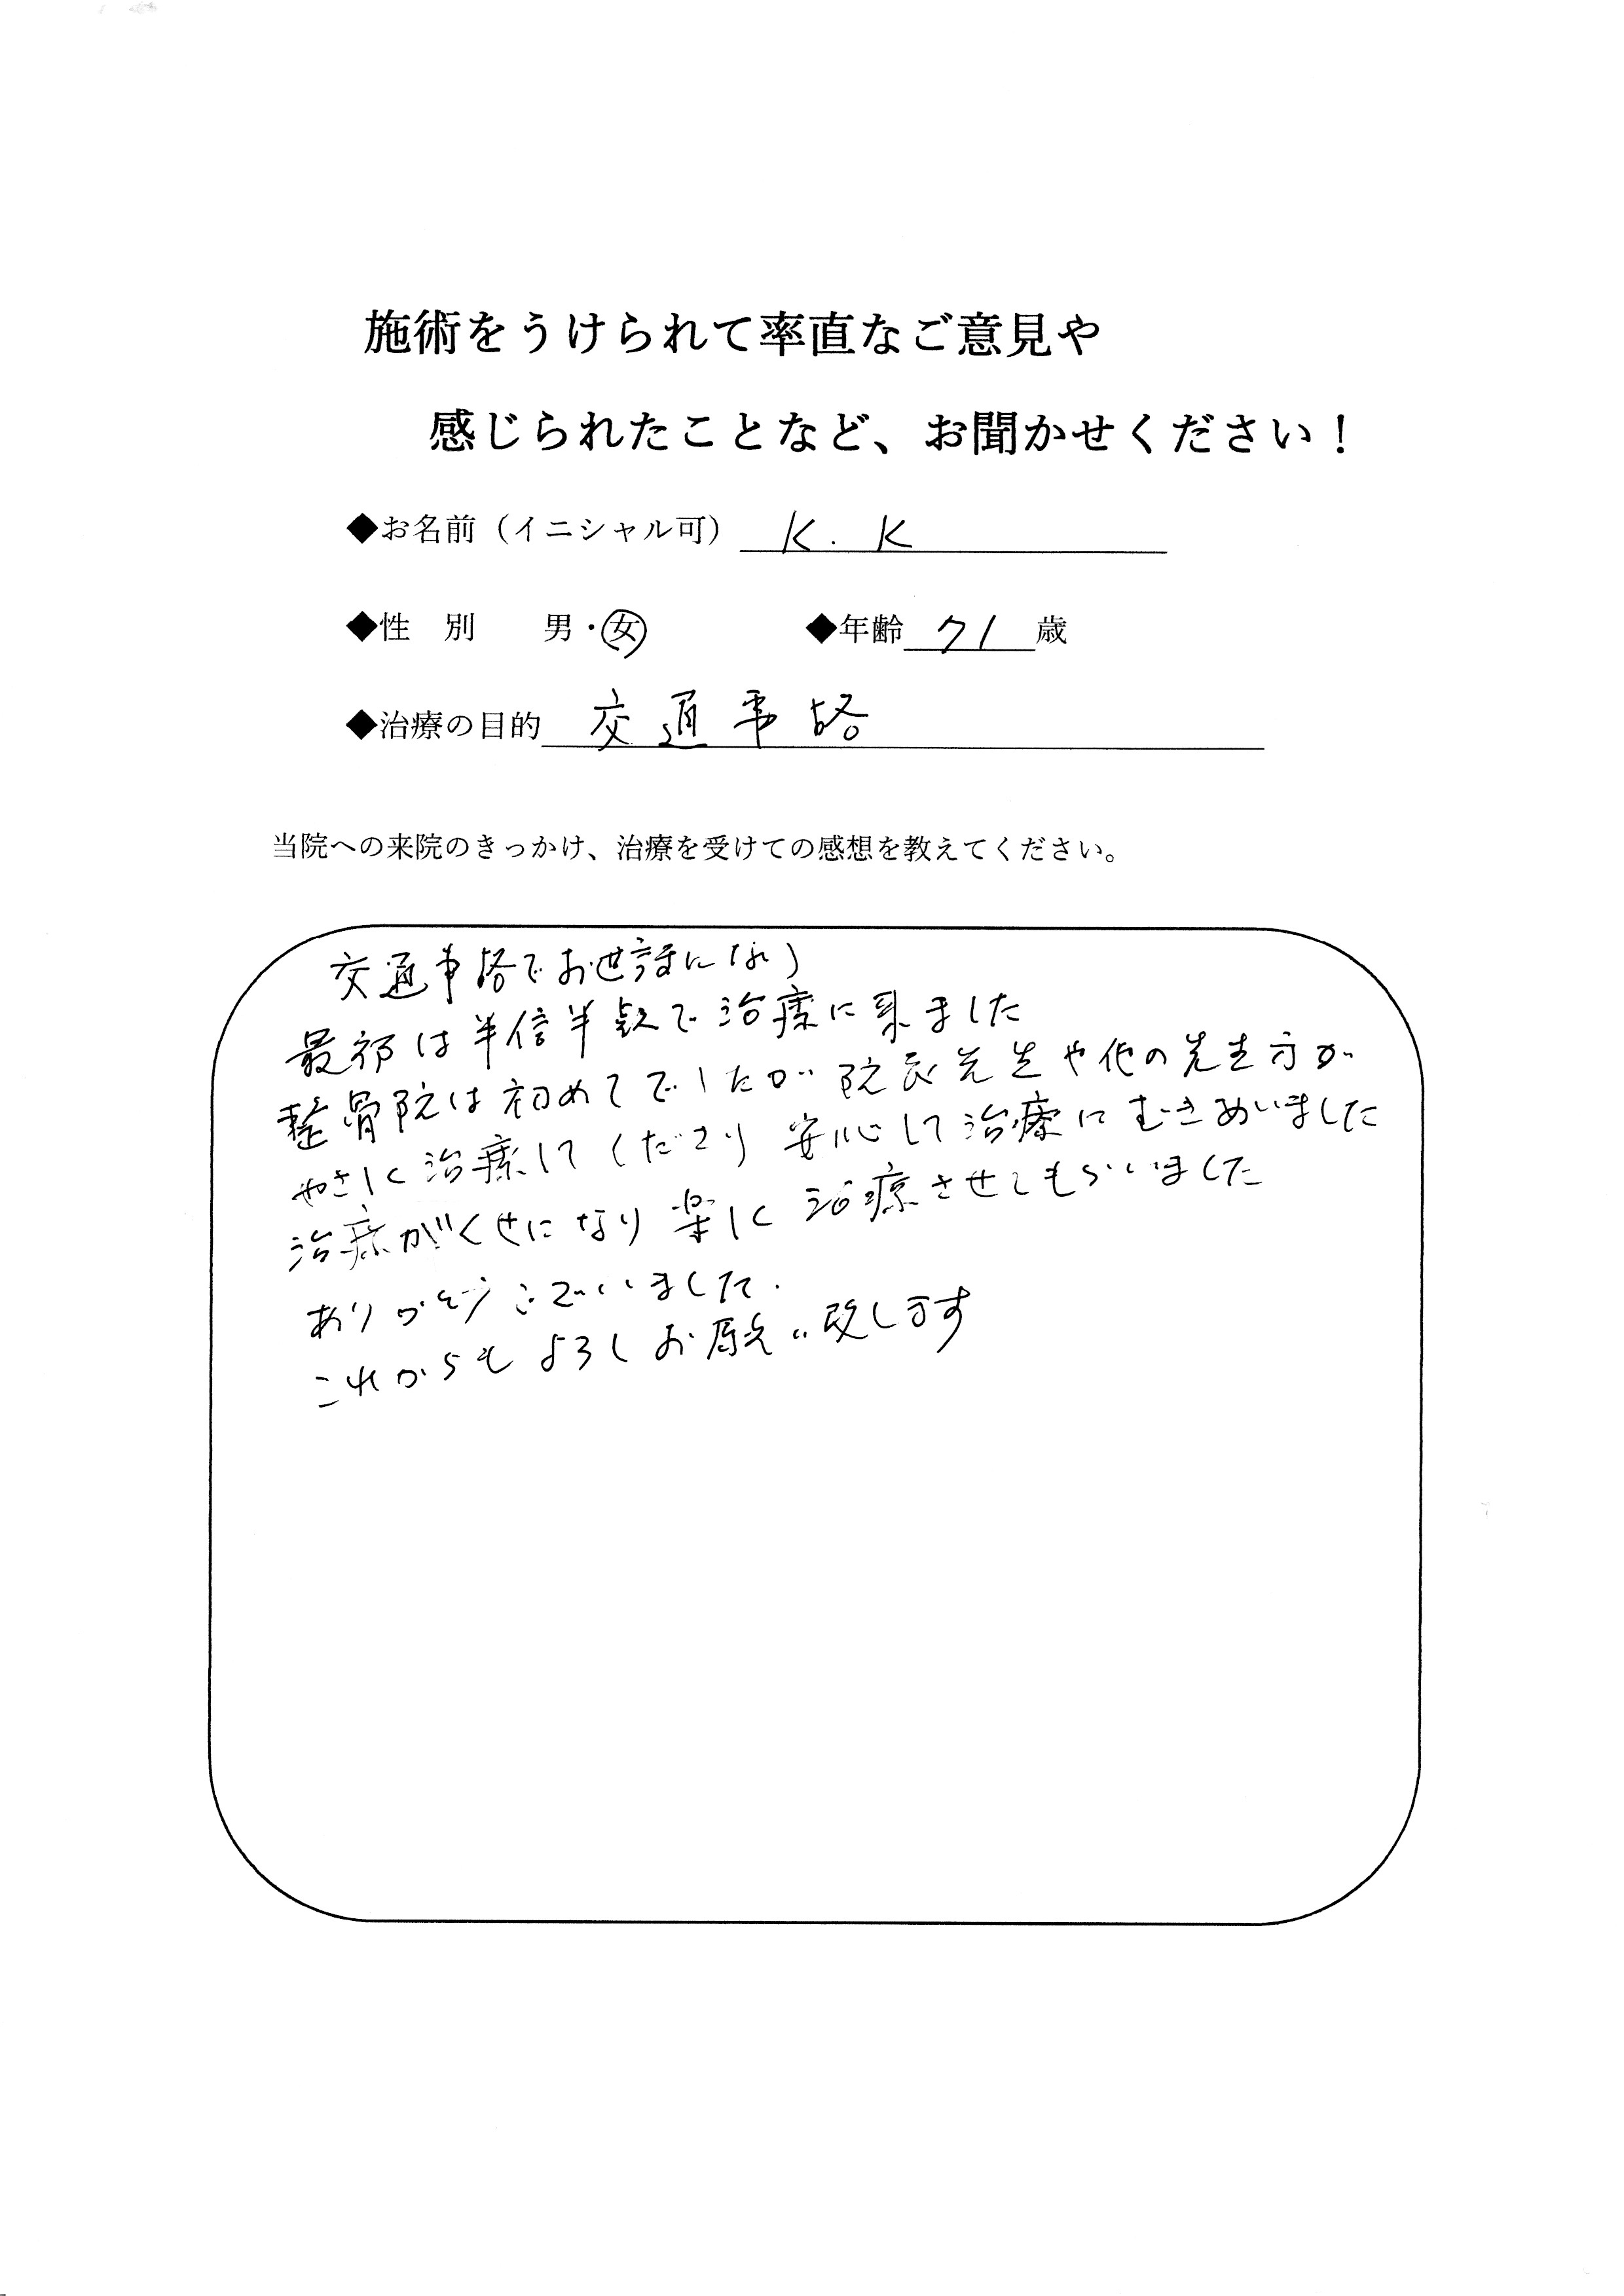 施術をうけられて率直なご意見や
感じられたことなど、お聞かせください！
◆お名前（イニシャル可） K. K
◆性　別　　男・女　　◆年齢 71 歳
◆治療の目的 交通事故
当院への来院のきっかけ、治療を受けての感想を教えてください。
交通事故でお世話になり
最初は半信半疑で治療に来ました
整骨院は初めてでしたが 院長先生や他の先生方が
やさしく治療してくださり 安心して治療にむきあいました
治療がくせになり 楽しく 治療させてもらいました
ありがとうございました.
これからも よろし お願い致します